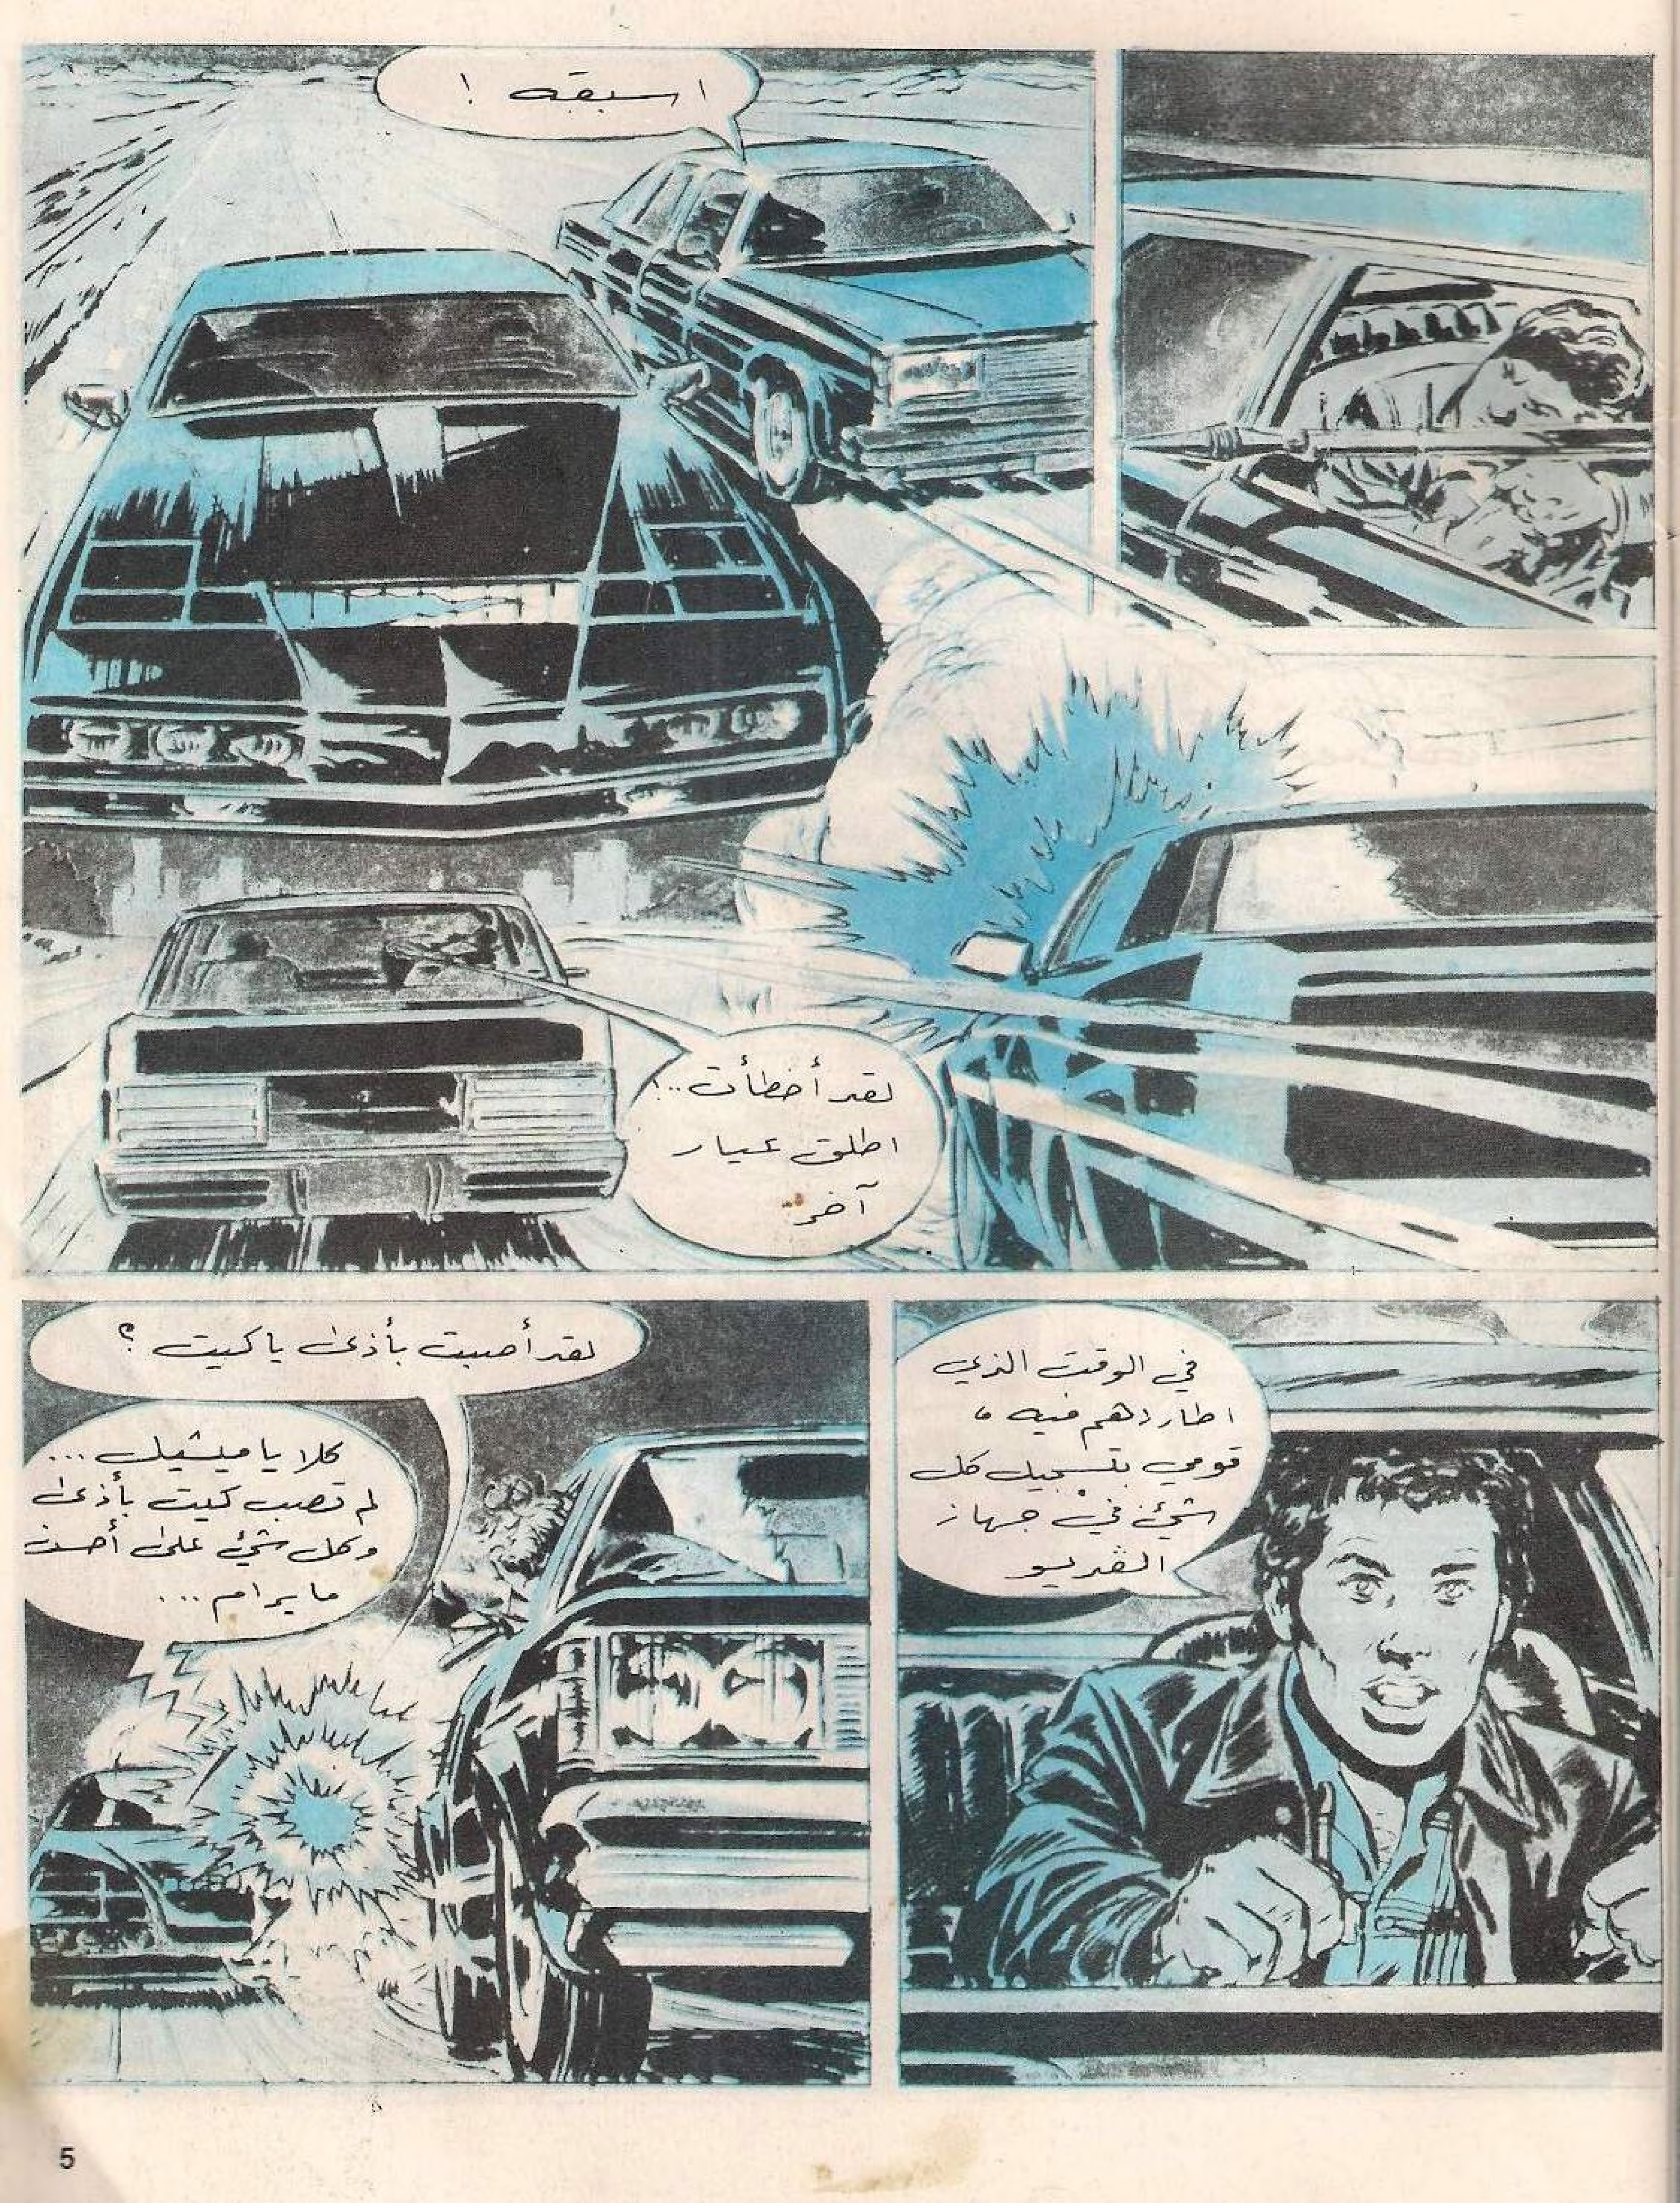 اسبقه !
لقد أخطأت ..!
اطلق عيار
آخر ..
في الوقت الذي
اطاردهم فيه ،
قومي بتسجيل كل
شيئ في جهاز
الڤديو
لقد أصبت بأذى ياكيت ؟
كلا يا ميشيل ...
لم تصب كيت بأذى
وكل شيئ على أحسن
ما يرام ...
5